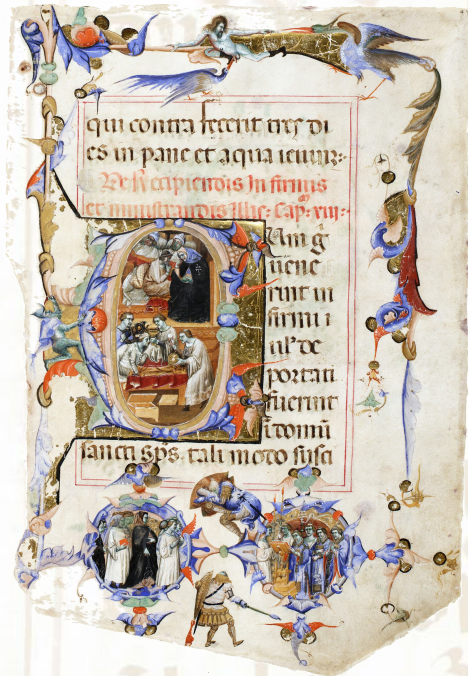 qui contra fecerit tres di
es in pane et aqua ieiun̄
De Recipiendis Infirmis
et ministrandis Cap. xiii.
Cum
uene
rint in
firmi
ul' de
portati
fuerint
ī domū
sancti sp̄s. tali modo susci